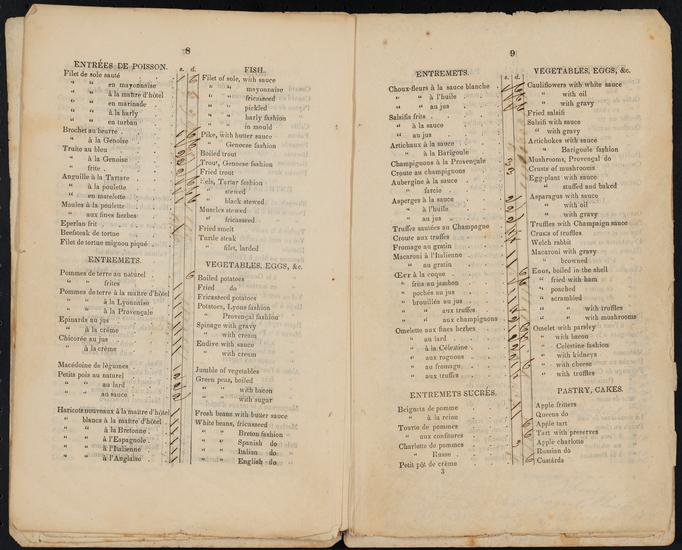 8
ENTRÉES DE POISSON.
s. d.
FISH.
Filet de sole sauté
Filet of sole, with sauce
" " en mayonnaise
" " mayonnaise
" " à la maître d'hôtel
" " fricasseed
" " en marinade
" " pickled
" " à la harly
" " harly fashion
" " en turban
" " in mould
Brochet au beurre
Pike, with butter sauce
" à la Genoise
" Genoese fashion
Truite au bleu
Boiled trout
" à la Genoise
Trout, Genoese fashion
" frite
Fried trout
Anguille à la Tartare
Eels, Tartar fashion
" à la poulette
" stewed
" en matelotte
" black stewed
Moules à la poulette
Muscles stewed
" aux fines herbes
" fricasseed
Eperlan frit
Fried smelt
Beefsteak de tortue
Turtle steak
Filet de tortue mignon piqué
" filet, larded
ENTREMETS.
VEGETABLES, EGGS, &c.
Pommes de terre au naturel
Boiled potatoes
" " frites
Fried do
Pommes de terre à la maître d'hôtel
Fricasseed potatoes
" " à la Lyonnaise
Potatoes, Lyons fashion
" " à la Provençale
" Provençal fashion
Epinards au jus
Spinage with gravy
" à la crème
" with cream
Chicorée au jus
Endive with sauce
" à la crème
" with cream
Macédoine de légumes
Jumble of vegetables
Petits pois au naturel
Green peas, boiled
" " au lard
" " with bacon
" " au sauce
" " with sugar
Haricots nouveaux à la maitre d'hôtel
Fresh beans with butter sauce
" blancs à la maître d'hôtel
White beans, fricasseed
" " à la Bretonne
" " Breton fashion
" " à l'Espagnole
" " Spanish do
" " à l'Italienne
" " Italian do
" " à l'Anglaise
" " English do
9
ENTREMETS.
s. d.
VEGETABLES, EGGS, &c.
Choux-fleurs à la sauce blanche
Cauliflowers with white sauce
" " à l'huile
" with oil
" " au jus
" with gravy
Salsifis frits
Fried salsifi
" à la sauce
Salsifi with sauce
" au jus
" with gravy
Artichaux à la sauce
Artichokes with sauce
" à la Barigoule
" Barigoule fashion
Champignons à la Provençale
Mushrooms, Provençal do
Croute au champignons
Crusts of mushrooms
Aubergine à la sauce
Egg-plant with sauce
" farcie
" stuffed and baked
Asperges à la sauce
Asparagus with sauce
" à l'huile
" with oil
" au jus
" with gravy
Truffes sautées au Champagne
Truffles with Champaign sauce
Croute aux truffes
Crusts of truffles
Fromage au gratin
Welch rabbit
Macaroni à l'Italienne
Macaroni with gravy
" au gratin
" browned
Œuf à la coque
Eggs, boiled in the shell
" frits au jambon
" fried with ham
" pochés au jus
" poached
" brouillés au jus
" scrambled
" " aux truffes
" " with truffles
" " aux champignons
" " with mushrooms
Omelette aux fines herbes
Omelet with parsley
" au lard
" with bacon
" à la Célestine
" Celestine fashion
" aux rognons
" with kidneys
" au fromage
" with cheese
" aux truffes
" with truffles
ENTREMETS SUCRÉS.
PASTRY, CAKES.
Beignets de pomme
Apple fritters
" à la reine
Queens do
Tourte de pommes
Apple tart
" aux confitures
Tart with preserves
Charlotte de pommes
Apple charlotte
" Russe
Russian do
Petit pôt de crème
Custards
3